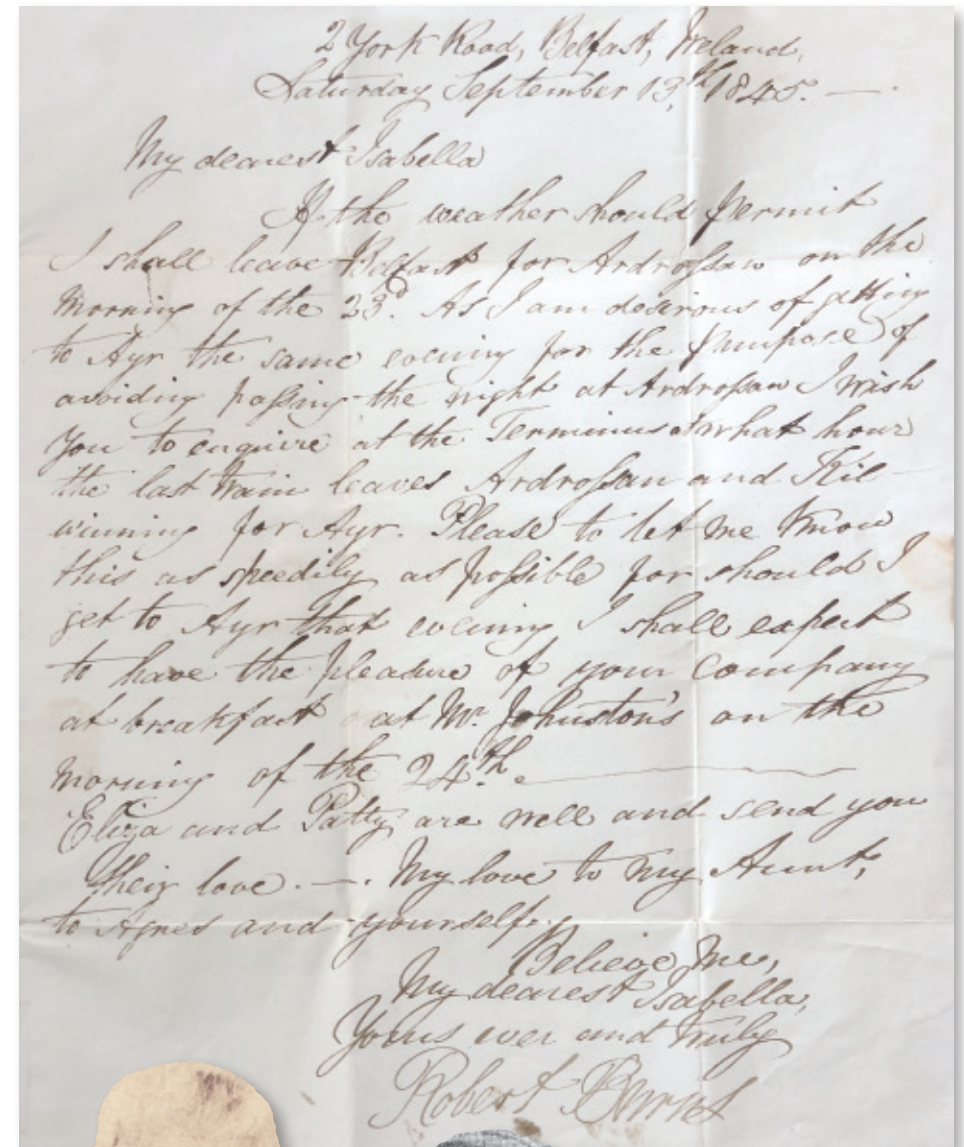 2 York Road, Belfast, Ireland.
Saturday September 13.th 1845. —.
My dearest Isabella
If the weather should permit
I shall leave Belfast for Ardrossan on the
morning of the 23d. As I am desirous of getting
to Ayr the same evening for the purpose of
avoiding passing the night at Ardrossan I wish
you to enquire at the Terminus at what hour
the last train leaves Ardrossan and Kil-
winning for Ayr. Please to let me know
this as speedily as possible for should I
get to Ayr that evening I shall expect
to have the pleasure of your company
at breakfast at Mr. Johnston's on the
morning of the 24th.
Eliza and Patty are well and send you
their love. —. My love to my Aunt,
to Agnes and yourself.
Believe me,
My dearest Isabella,
Yours ever and truly
Robert Burns